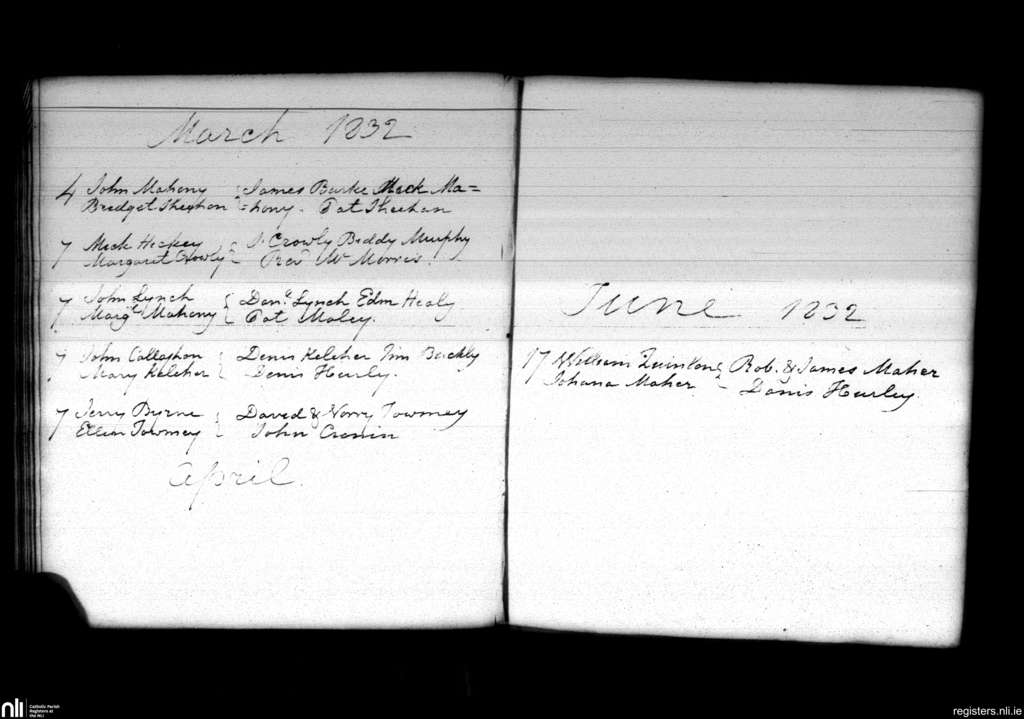 March 1832
4 John Mahony { James Burke Mick Ma=
Bridget Sheehan =hony. Pat Sheehan
7 Mick Hickey { J. Crowly Biddy Murphy
Margaret Crowly Rev Mr Morris.
7 John Lynch { Danl Lynch Edm Healy
Margt Mahony Pat Maley.
7 John Callaghan { Denis Keleher Tim Buckly
Mary Keleher Denis Hurley.
7 Jerry Byrne { David & Norry Towmey
Ellen Towmey John Cronin
April.
June 1832
17 William Quinlan { Rob. & James Maher
Johana Maher Denis Hurley.
nli
Catholic Parish
Registers at
the NLI
registers.nli.ie